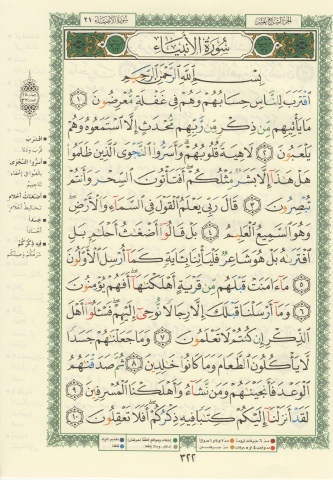 الجزء السابع عشر
سورة الأنبياء ٢١
سُورَةُ الأَنبِيَاءِ
بِسْمِ اللَّهِ الرَّحْمَٰنِ الرَّحِيمِ
اقْتَرَبَ لِلنَّاسِ حِسَابُهُمْ وَهُمْ فِي غَفْلَةٍ مُّعْرِضُونَ ١
مَا يَأْتِيهِم مِّن ذِكْرٍ مِّن رَّبِّهِم مُّحْدَثٍ إِلَّا اسْتَمَعُوهُ وَهُمْ
يَلْعَبُونَ ٢ لَاهِيَةً قُلُوبُهُمْ وَأَسَرُّوا النَّجْوَى الَّذِينَ ظَلَمُوا
هَلْ هَٰذَا إِلَّا بَشَرٌ مِّثْلُكُمْ أَفَتَأْتُونَ السِّحْرَ وَأَنتُمْ
تُبْصِرُونَ ٣ قَالَ رَبِّي يَعْلَمُ الْقَوْلَ فِي السَّمَاءِ وَالْأَرْضِ
وَهُوَ السَّمِيعُ الْعَلِيمُ ٤ بَلْ قَالُوا أَضْغَاثُ أَحْلَامٍ بَلِ
افْتَرَاهُ بَلْ هُوَ شَاعِرٌ فَلْيَأْتِنَا بِآيَةٍ كَمَا أُرْسِلَ الْأَوَّلُونَ
٥ مَا آمَنَتْ قَبْلَهُم مِّن قَرْيَةٍ أَهْلَكْنَاهَا أَفَهُمْ يُؤْمِنُونَ
٦ وَمَا أَرْسَلْنَا قَبْلَكَ إِلَّا رِجَالًا نُّوحِي إِلَيْهِمْ فَسْئَلُوا أَهْلَ
الذِّكْرِ إِن كُنتُمْ لَا تَعْلَمُونَ ٧ وَمَا جَعَلْنَاهُمْ جَسَدًا
لَّا يَأْكُلُونَ الطَّعَامَ وَمَا كَانُوا خَالِدِينَ ٨ ثُمَّ صَدَقْنَاهُمُ
الْوَعْدَ فَأَنجَيْنَاهُمْ وَمَن نَّشَاءُ وَأَهْلَكْنَا الْمُسْرِفِينَ ٩
لَقَدْ أَنزَلْنَا إِلَيْكُمْ كِتَابًا فِيهِ ذِكْرُكُمْ أَفَلَا تَعْقِلُونَ ١٠
اقترب
قرب ودنا
أسروا النجوى
أضغاث أحلام
جسدا
فيه ذكركم
٣٢٢